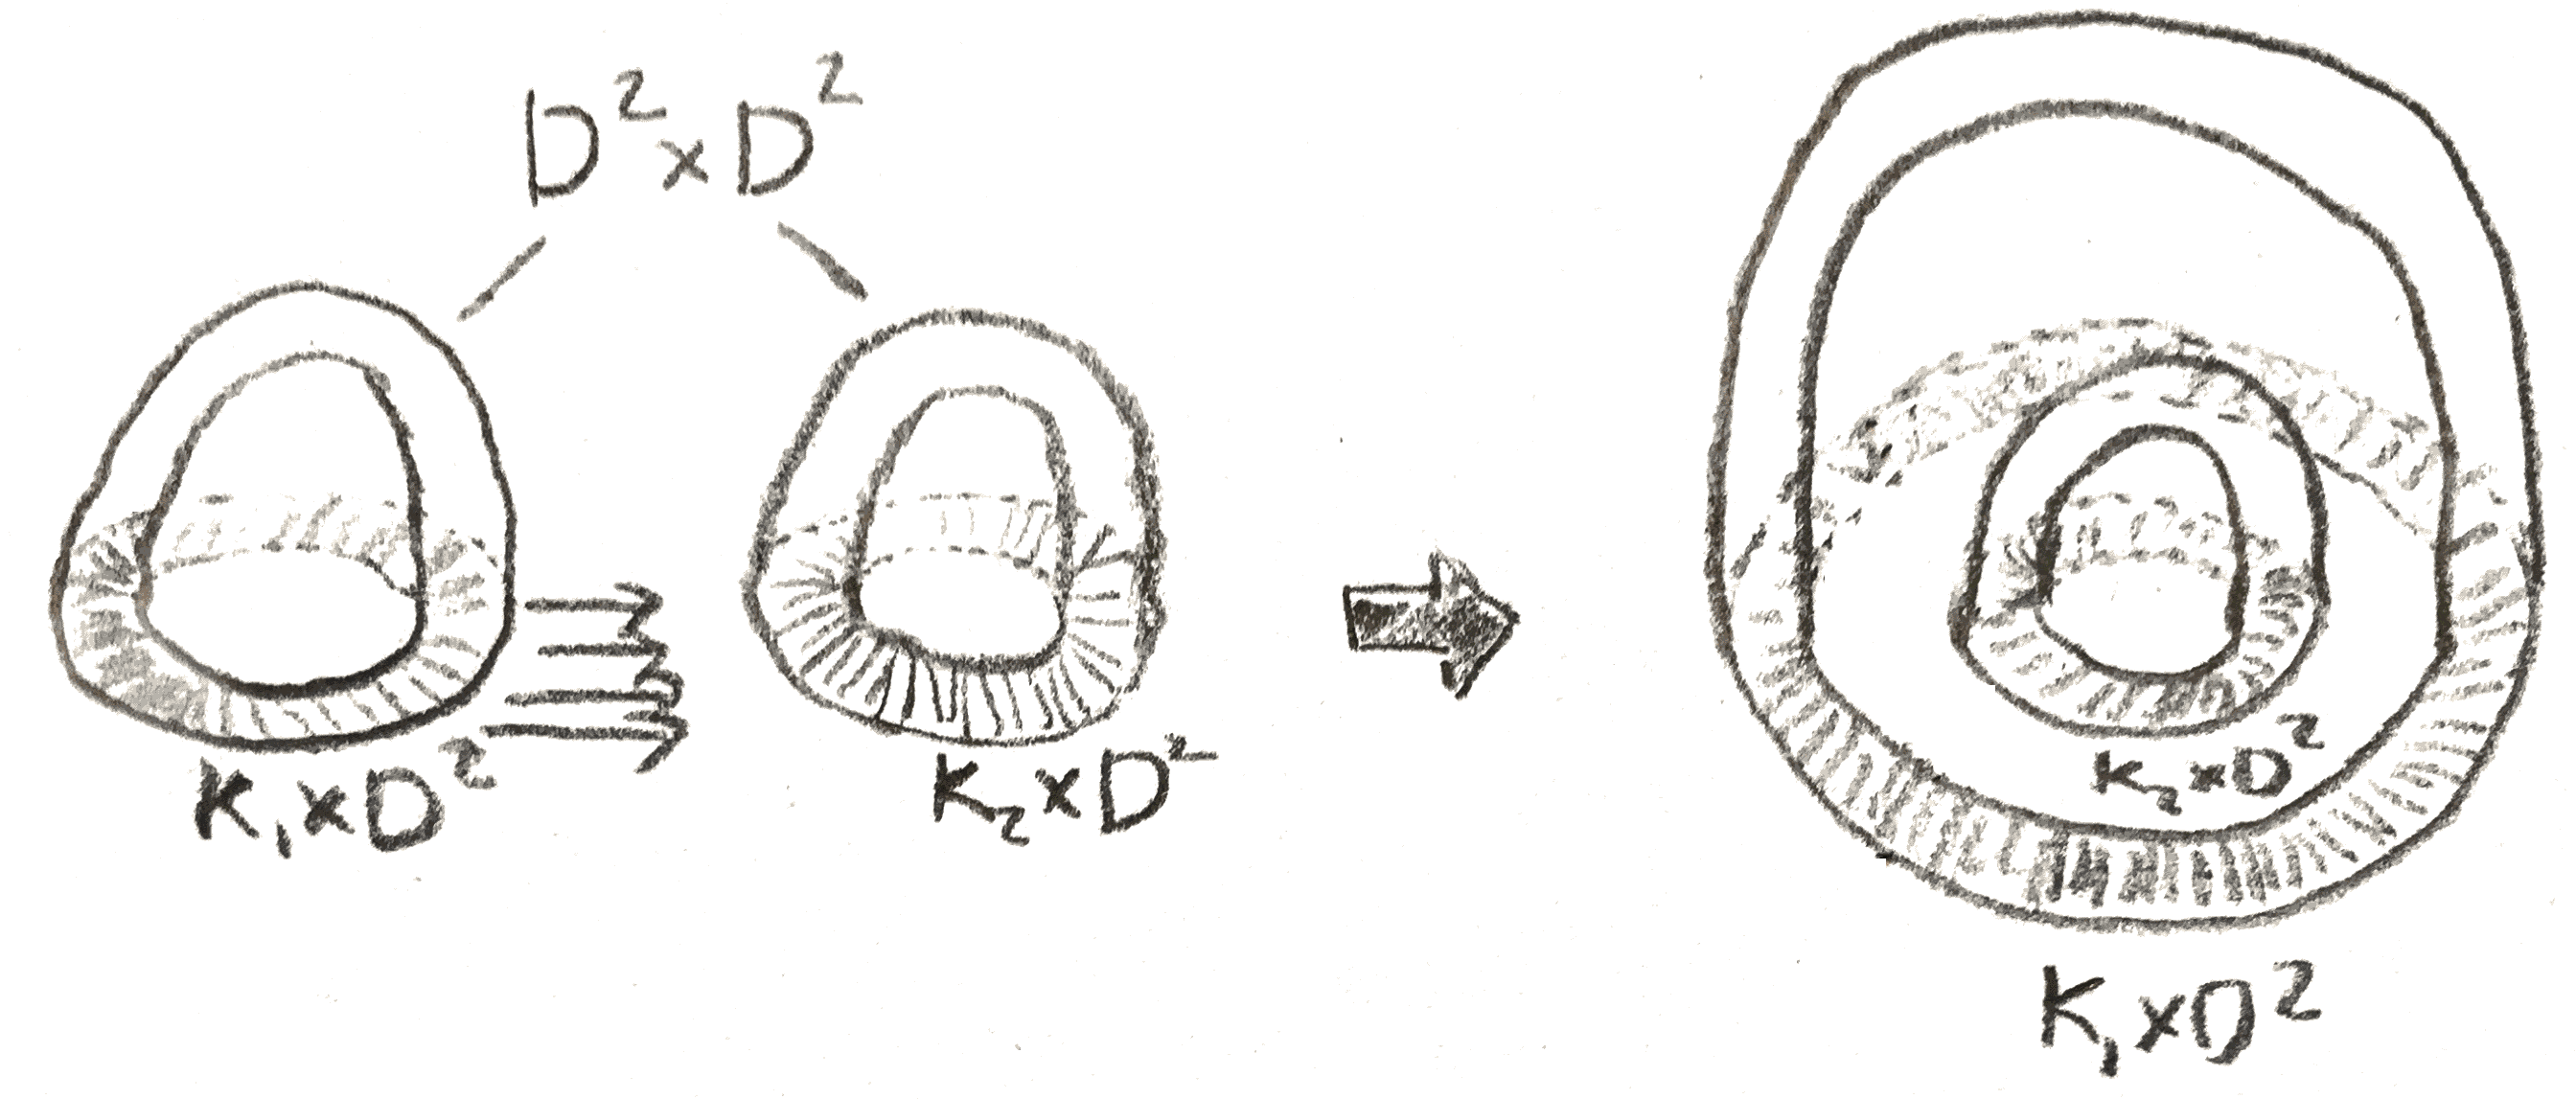 D² × D²
K₁ × D²
K₂ × D²
K₂ × D²
K₁ × D²